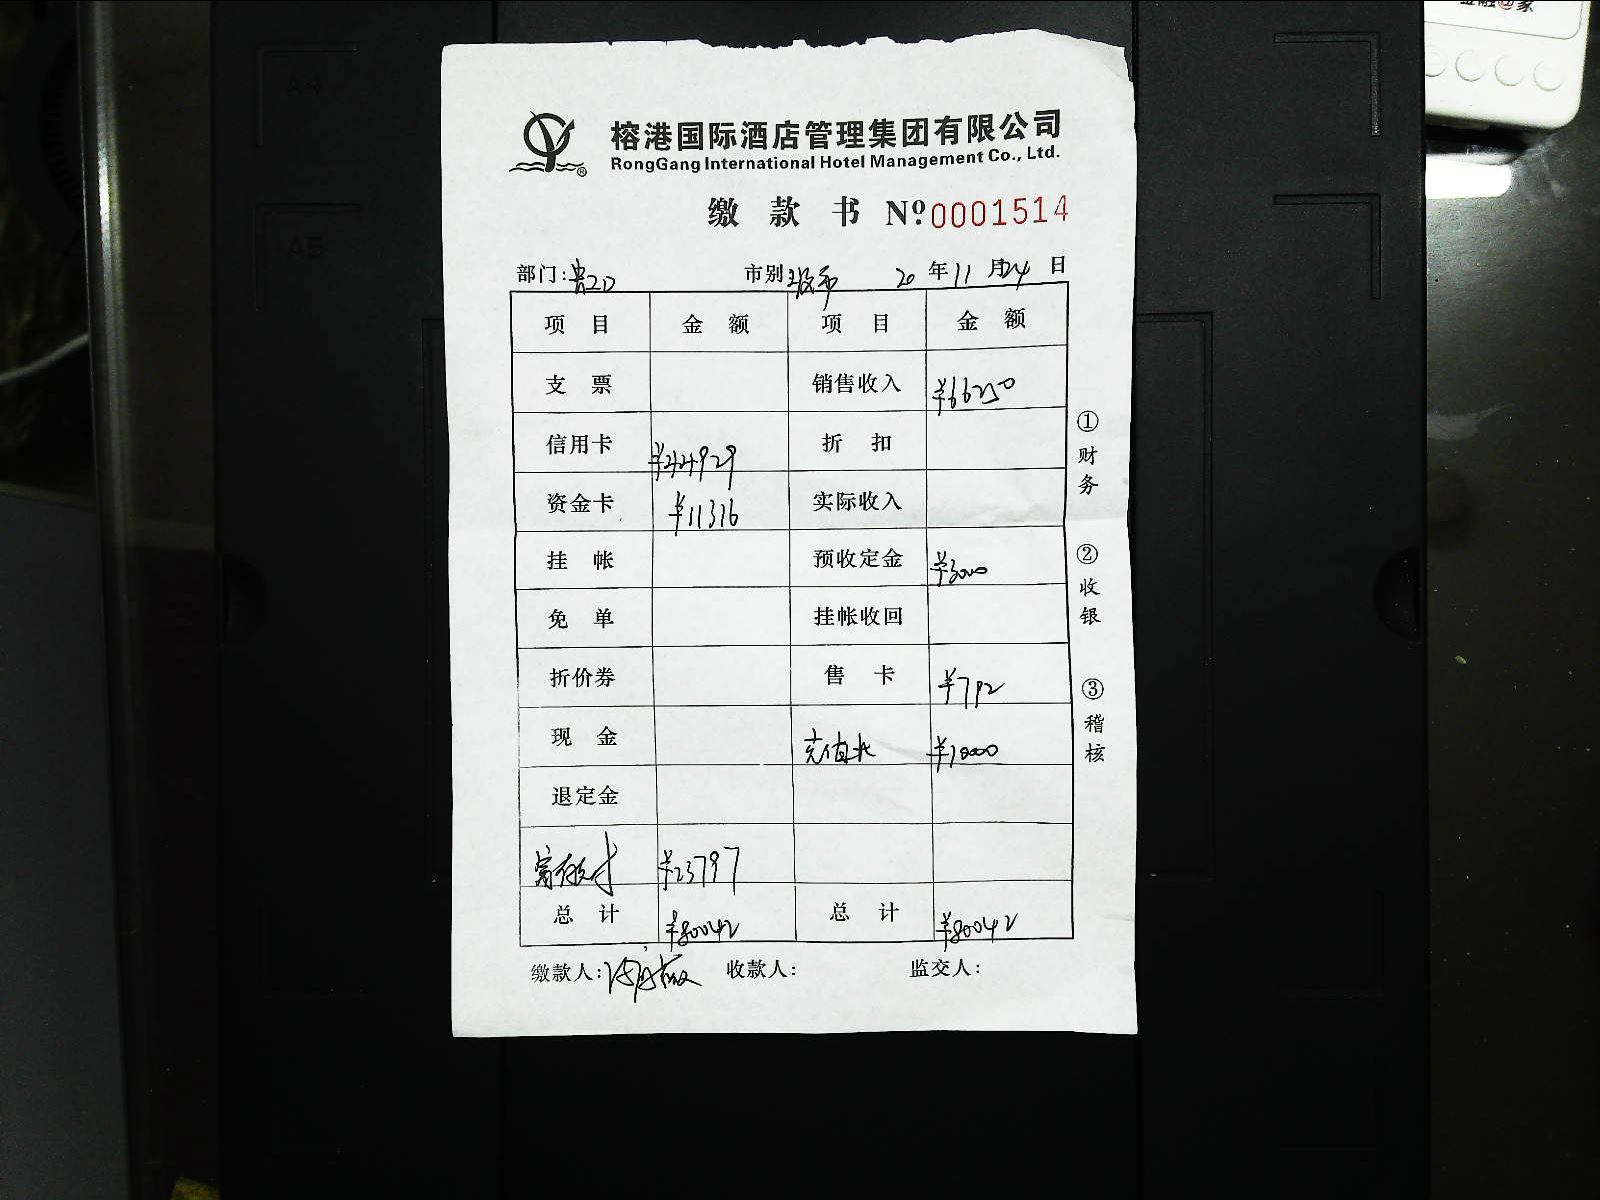 A4
A5
榕港国际酒店管理集团有限公司
RongGang International Hotel Management Co., Ltd.
缴 款 书 Nº 0001514
部门: 市别 20 年 11 月 24 日
项 目 金 额 项 目 金 额
支 票 销售收入 ¥66250
信用卡 ¥44929 折 扣
资金卡 ¥11316 实际收入
挂 帐 预收定金 ¥3000
免 单 挂帐收回
折价券 售 卡 ¥792
现 金 充值卡 ¥10000
退定金
¥23797
总 计 ¥80042 总 计 ¥80042
缴款人: 收款人: 监交人:
①财务
②收银
③稽核